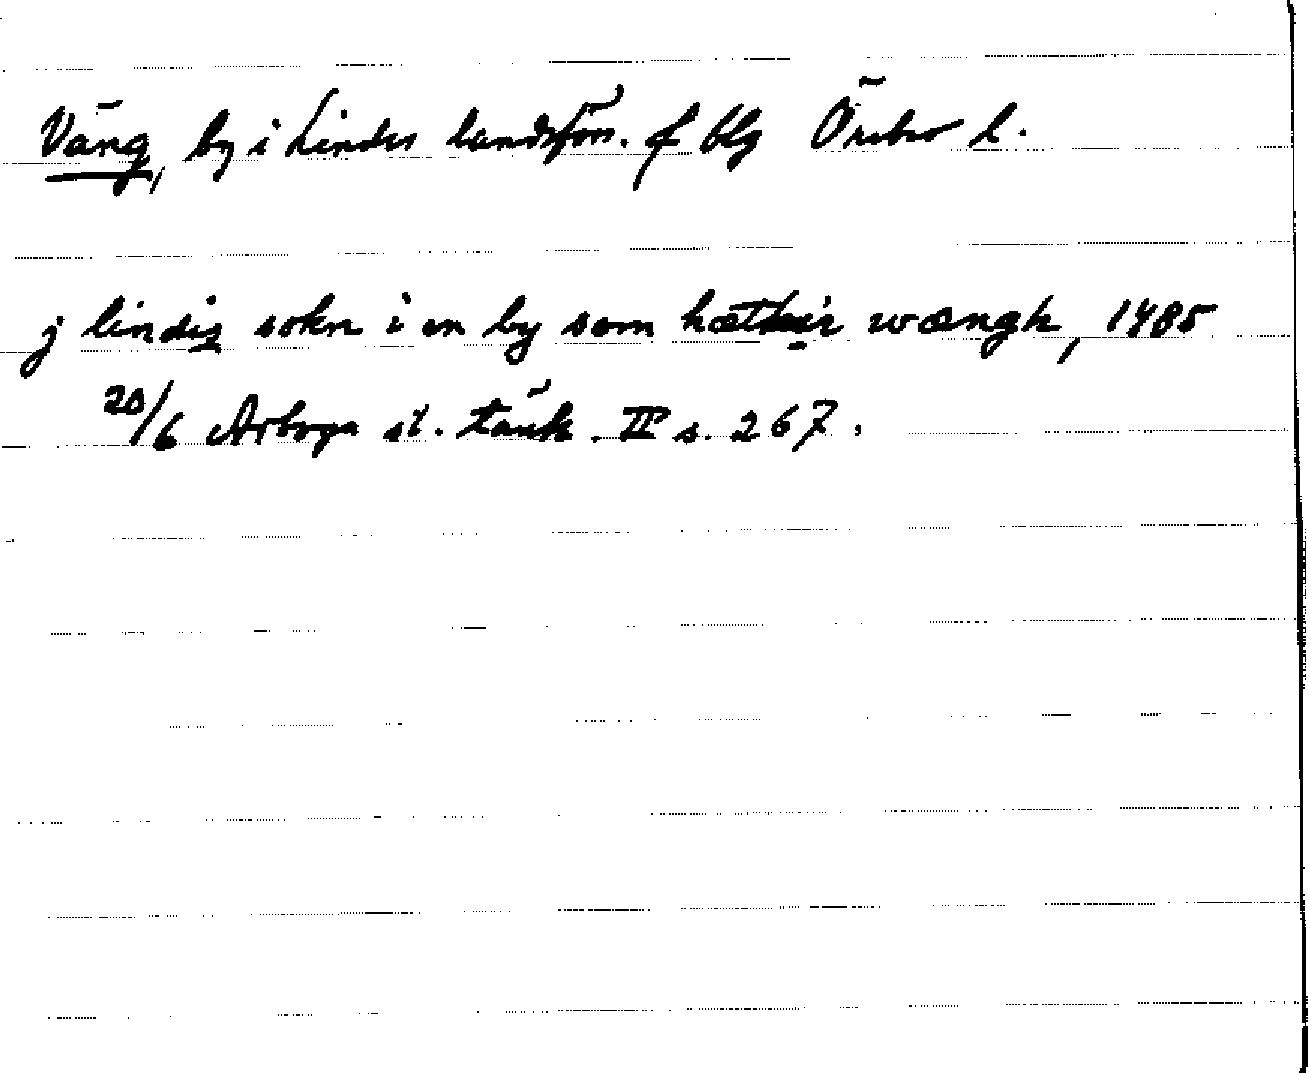 Väng, by i Lindes landsförs. f blg Örebro l.
j lindis sokn i en by som hæthir wængh, 1485
20/6 Arboga st. tänk. II s. 267.